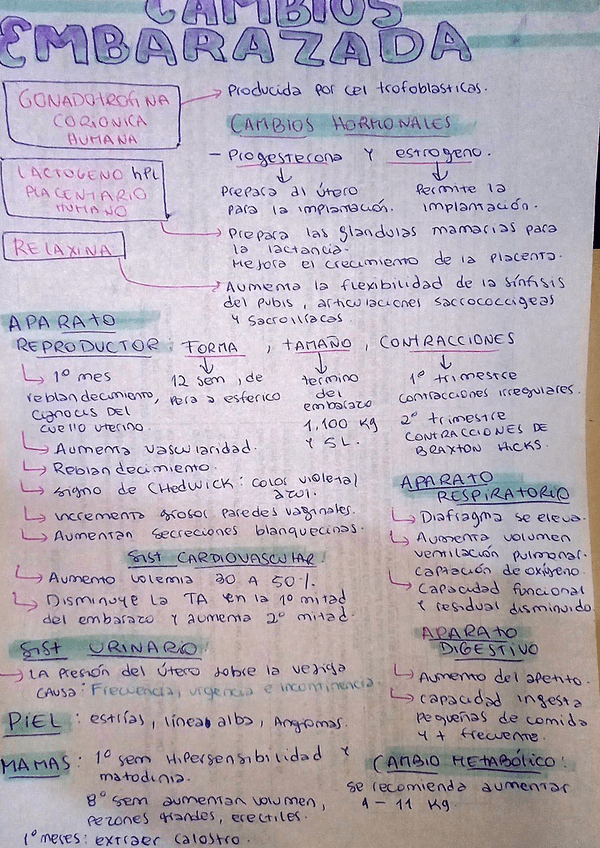 CAMBIOS
EMBARAZADA
GONADOTROFINA
CORIONICA
HUMANA
Producida por cel trofoblasticas.
CAMBIOS HORMONALES
LACTOGENO hPL
PLACENTARIO
HUMANO
RELAXINA
- Progesterona y estrogeno.
Prepara al útero
para la implantación.
Permite la
implantación.
Prepara las glandulas mamarias para
la lactancia.
Mejora el crecimiento de la placenta.
Aumenta la flexibilidad de la sínfisis
del pubis, articulaciones sacrococcigeas
y sacroiliacas.
APARATO
REPRODUCTOR: FORMA, TAMAÑO, CONTRACCIONES
1º mes
reblandecimiento,
DEL
cuello uterino.
12 sem, de
pera a esferico
termino
del
embarazo
1,100 Kg
y 5L.
1º trimestre
contracciones irregulares.
2º trimestre
CONTRACCIONES DE
BRAXTON HICKS.
Aumenta vascularidad.
Reblandecimiento.
signo de CHEDWICK: color violeta/
azul.
incremento grosor paredes vaginales.
Aumentan secreciones blanquecinas.
APARATO
RESPIRATORIO
Diafragma se eleva.
Aumenta volumen
ventilación pulmonar.
captación de oxígeno.
Capacidad funcional
y residual disminuido
SIST CARDIOVASCULAR:
Aumento volemia 30 A 50%.
Disminuye la TA en la 1º mitad
del embarazo y aumenta 2º mitad.
SIST URINARIO:
LA presión del útero sobre la vejiga
causa: Frecuencia, urgencia e incontinencia.
APARATO
DIGESTIVO
Aumento del apetito.
capacidad ingesta
pequeñas de comida
y + frecuente.
PIEL: estrías, linea alba, Angiomas.
MAMAS: 1º sem Hipersensibilidad y
8º sem aumentan volumen,
pezones grandes, erectiles.
1º meses: extraer calostro.
CAMBIO METABÓLICO:
se recomienda aumentar
- 11 Kg